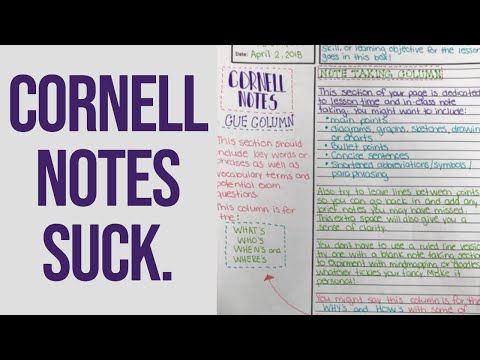 CORNELL
NOTES
SUCK.
Date: April 2, 2018
CORNELL
NOTES
CUE COLUMN
This section should
include key words or
phrases as well as
vocabulary terms and
potential exam
questions.
This column is for
the:
WHAT'S
WHO'S
WHEN'S and
WHERE'S
skill, or learning objective for the lesson
goes in this box!
NOTE TAKING COLUMN
This section of your page is dedicated
to lesson time and in-class note
taking. You might want to include:
• main points
• diagrams, graphs, sketches, drawin
or charts
• Bullet points
• Concise sentences
• Shortened abbreviations/symbols/
paraphrasing
Also try to leave lines between points
so you can go back in and add any
brief notes you may have missed.
This extra space will also give you a
sense of clarity.
You don't have to use a ruled line versio
try one with a blank note taking section
to experiment with mindmapping or doodles
whatever tickles your fancy. Make it
personal!
You might say this column is for the
WHY's and HOW's with some of